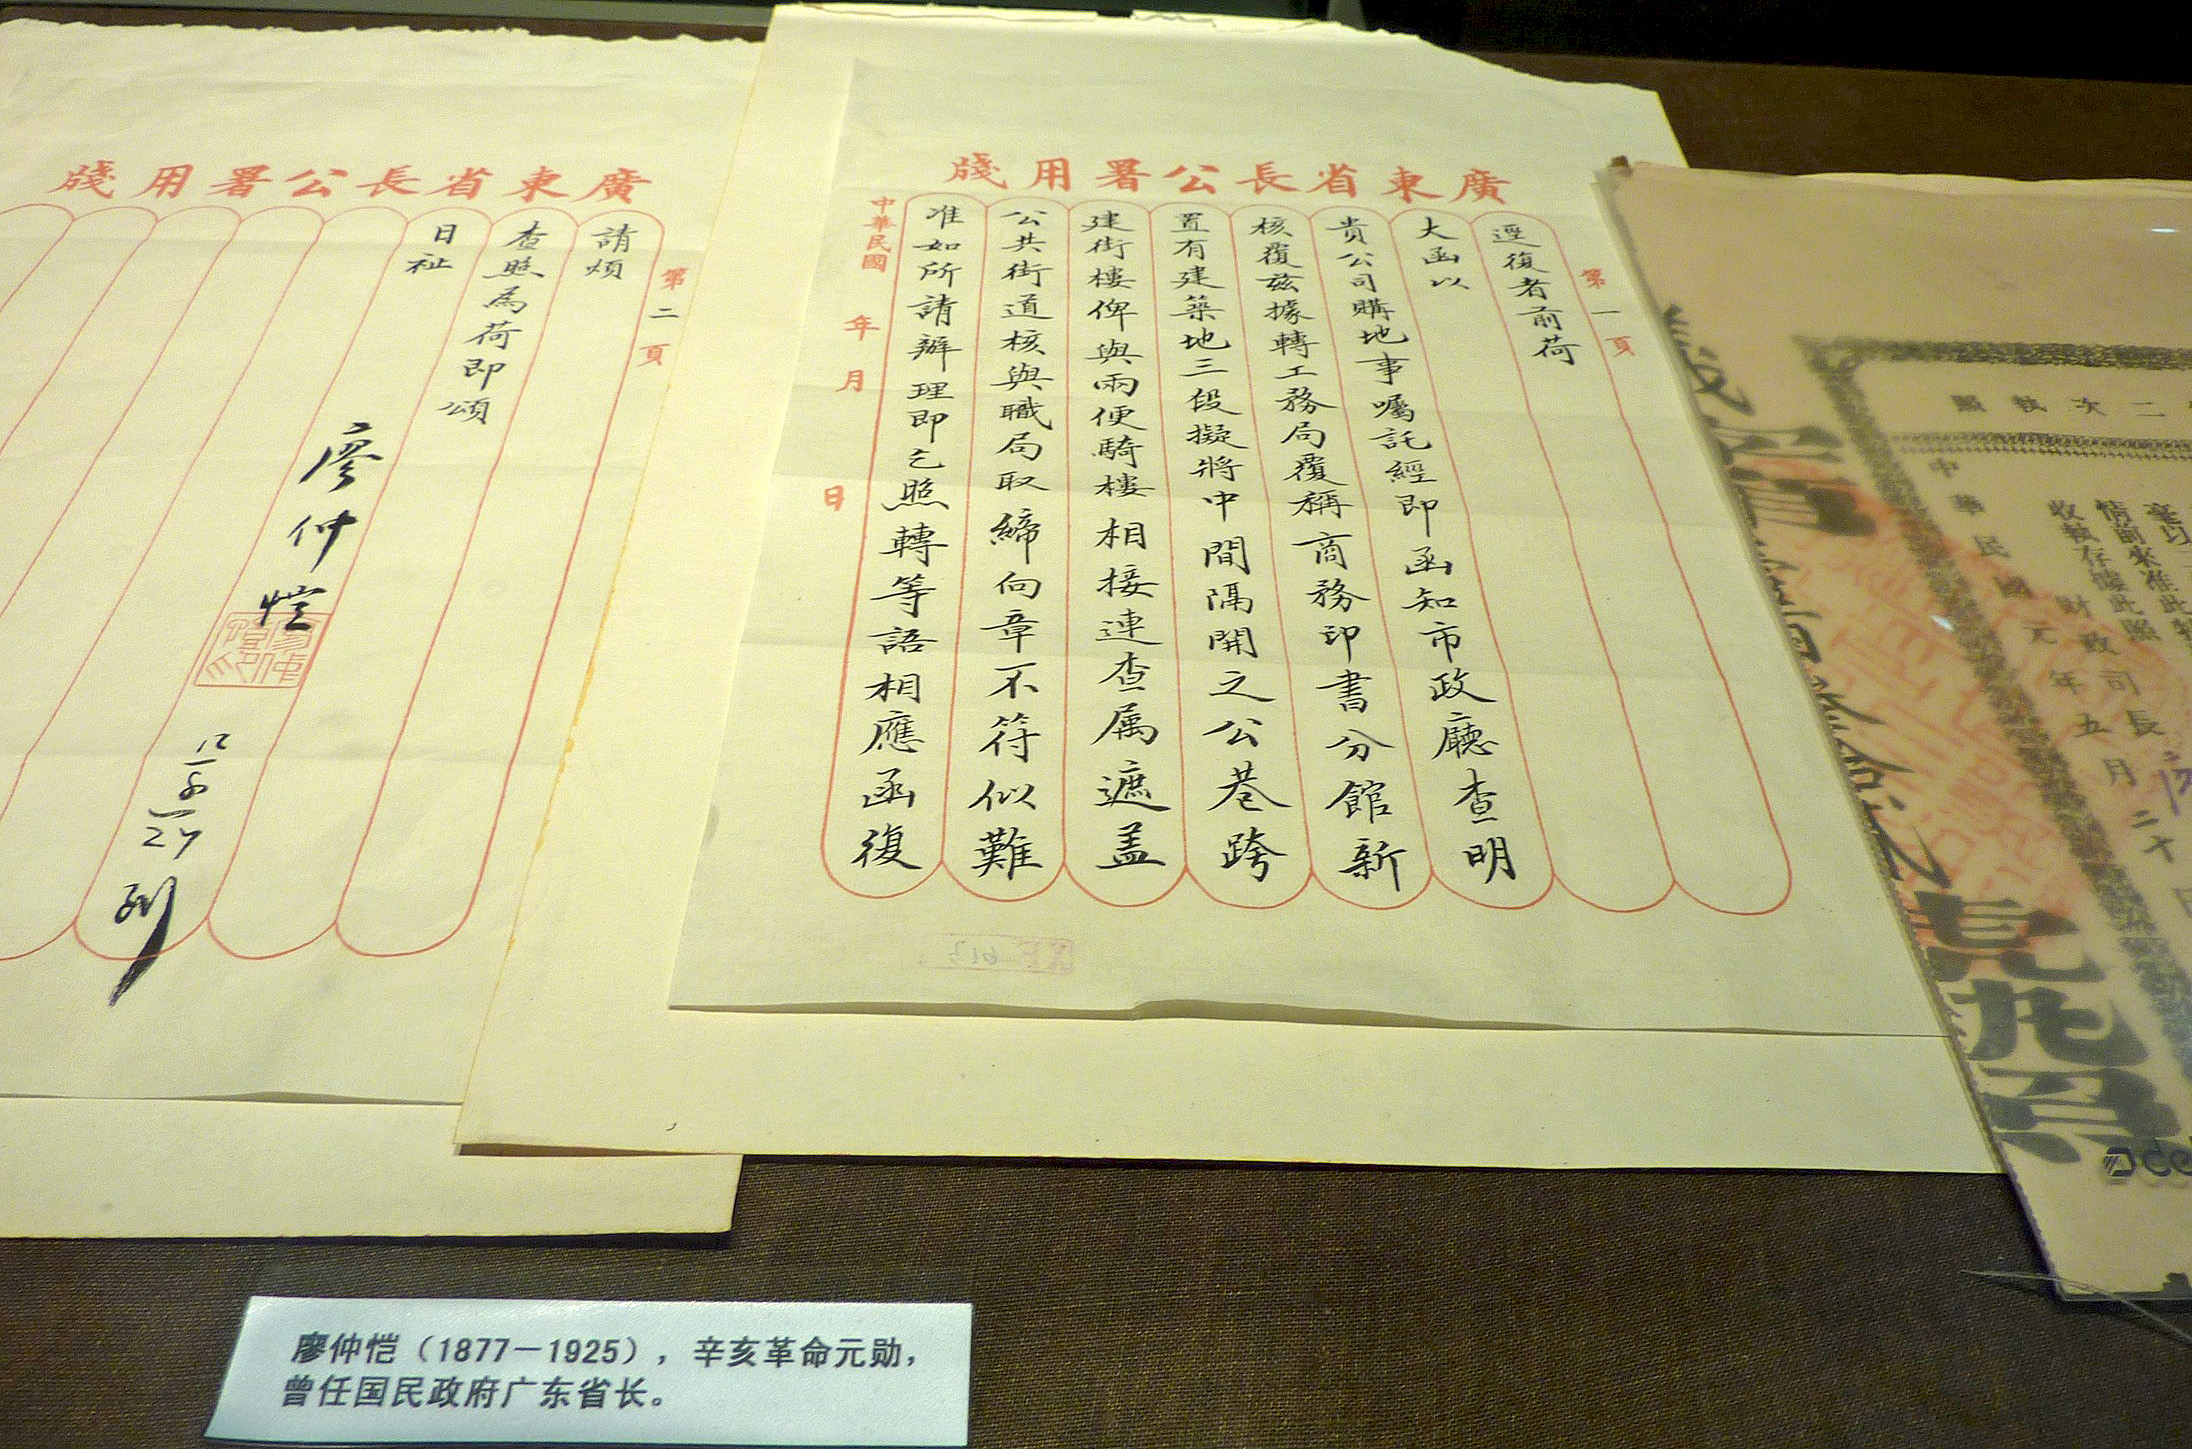 廣東省長公署用牋
第一頁
逕復者前荷
大函以
貴公司購地事囑託經即函知市政廳查明
核覆茲據轉工務局覆稱商務印書分館新
置有建築地三段擬將中間隔開之公巷跨
建街樓俾與兩便騎樓相接連查属遮盖
公共街道核與職局取締向章不符似難
准如所請辦理即乞照轉等語相應函復
中華民國 年 月 日
廣東省長公署用牋
第二頁
請煩
查照為荷即頌
日祉
廖仲愷
照執次二
中華民國元年五月二十
財政司長
廖仲恺（1877－1925），辛亥革命元勋，
曾任国民政府广东省长。